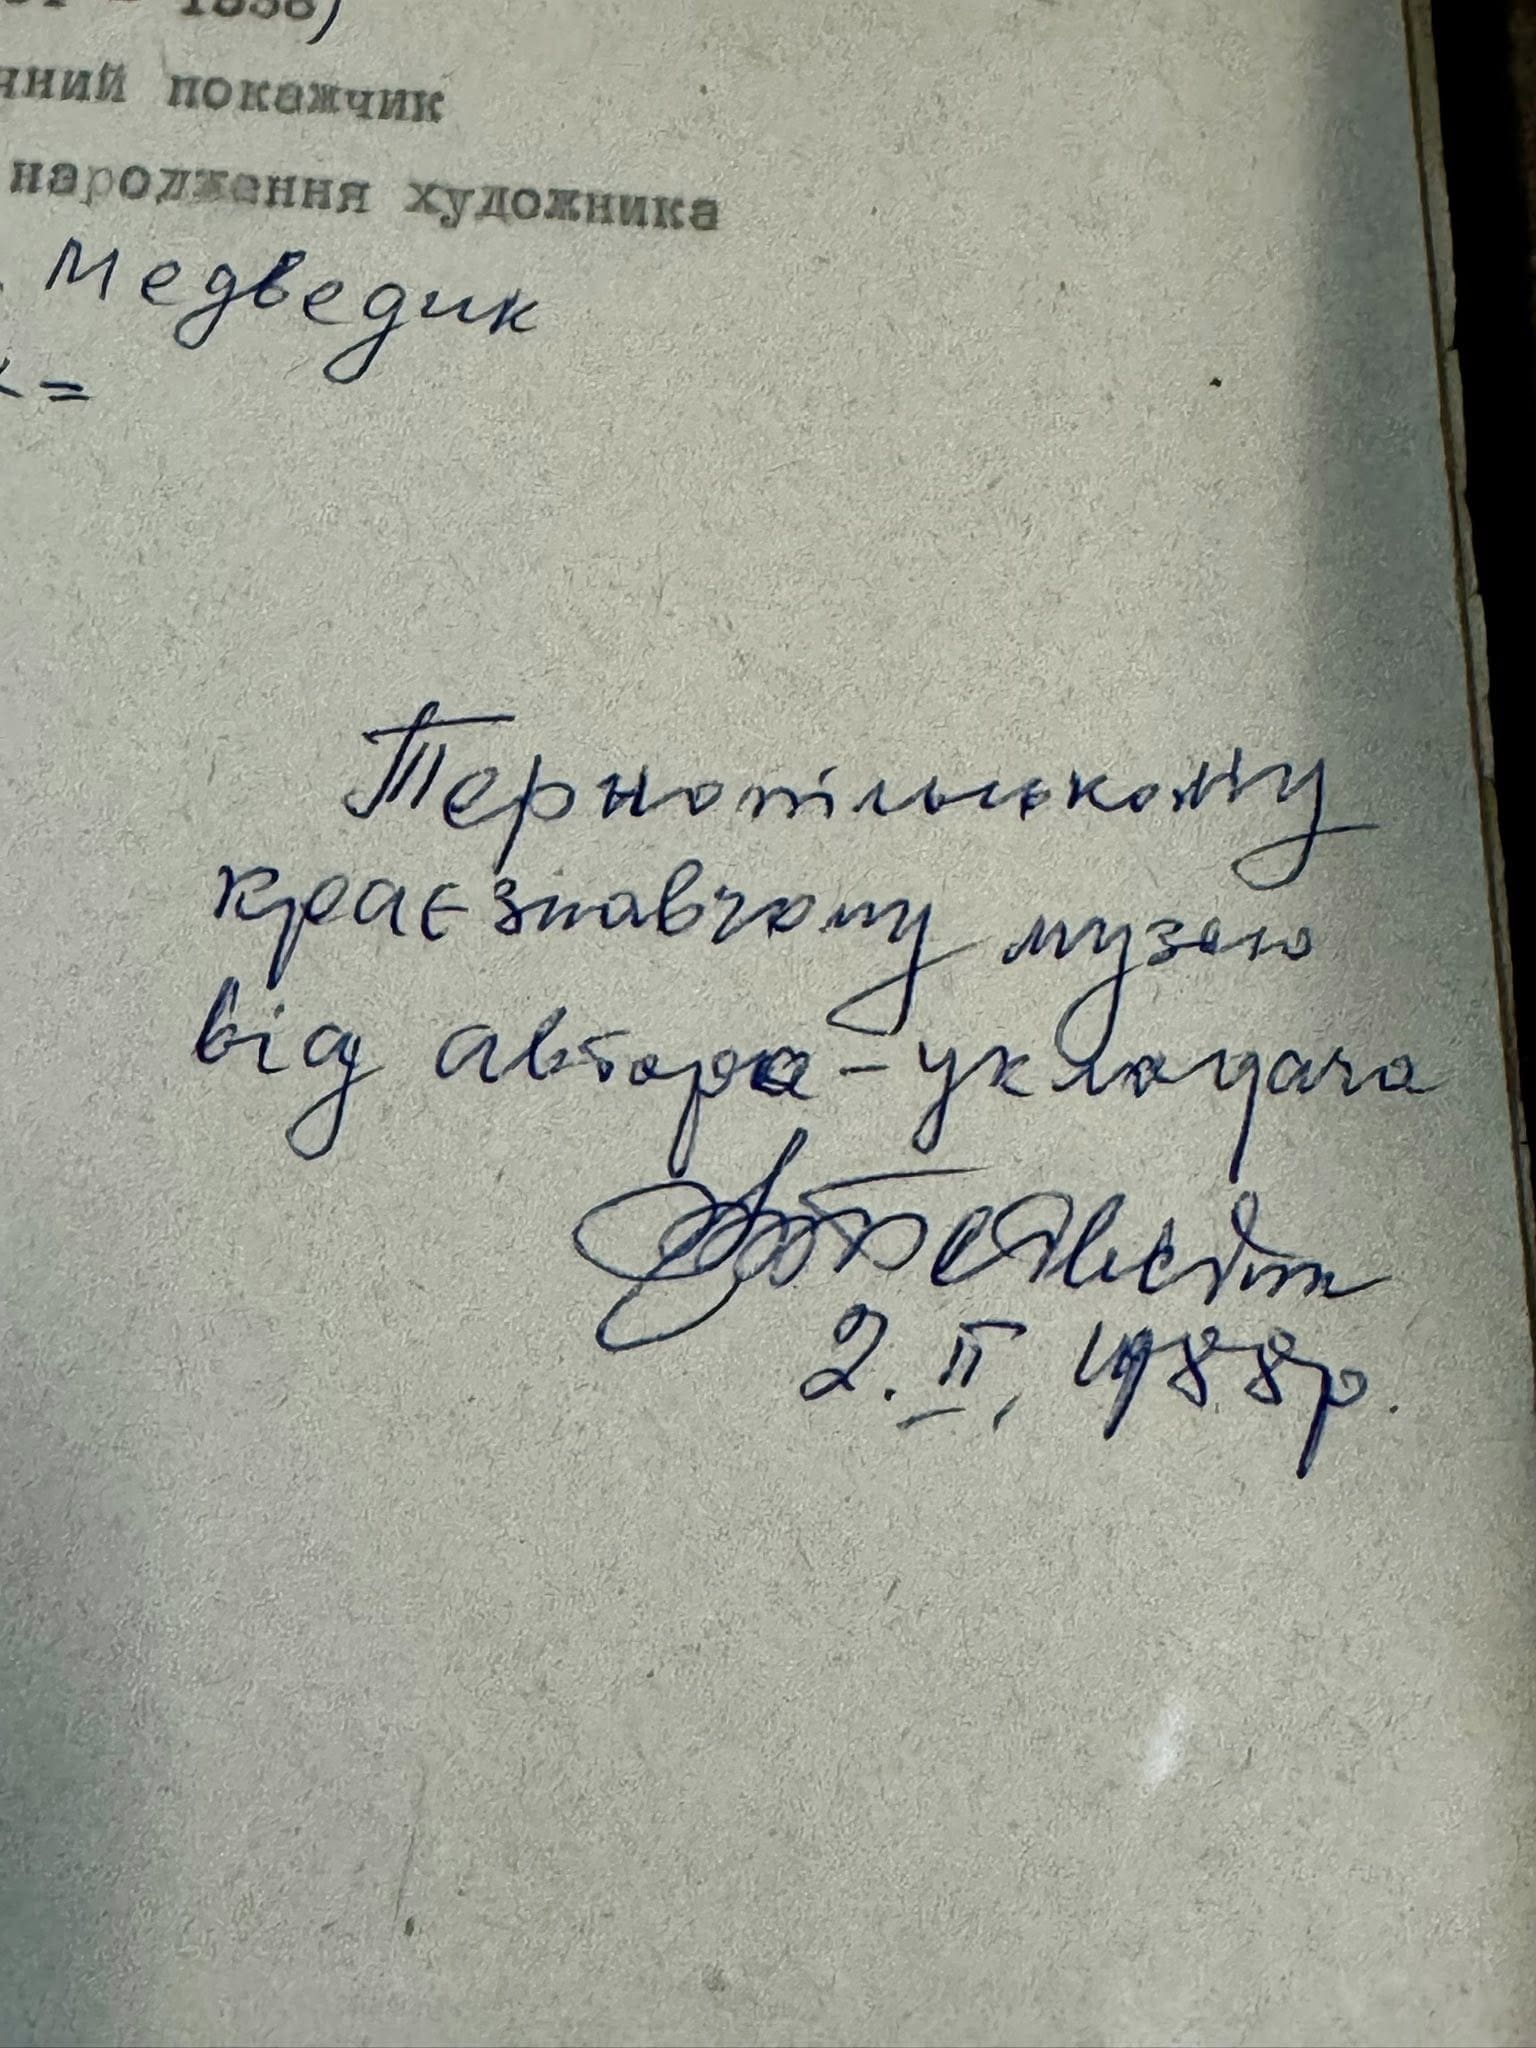 - 1838)
чний покажчик
народження художника
. Медведик
=
Тернопільському
краєзнавчому музею
від автора-укладача
2.II.1988р.